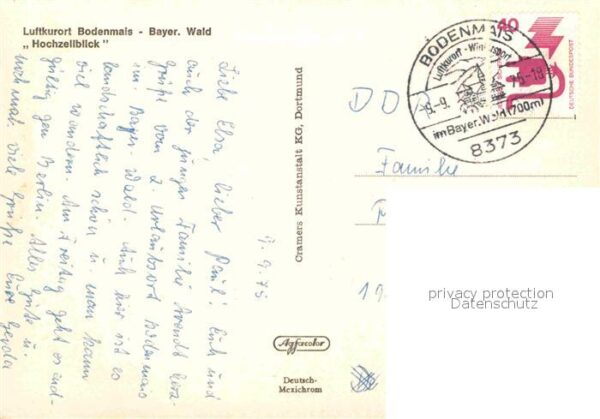 Luftkurort Bodenmais - Bayer. Wald
„Hochzellblick"
7.9.75
Liebe Elsa, lieber Paul! Euch und
auch der jungen Familie Arendt
Grüße vom 2. Urlaubsort Bodenmais
im Bayer. Wald. Auch hier ist es
landschaftlich schön u. man kann
viel wandern. Am Freitag geht es end-
gültig gen Berlin. Alles Gute u.
nochmals viele Grüße Eure Gerda
Cramers Kunstanstalt KG, Dortmund
Agfacolor
Deutsch-
Mexichrom
BODENMAIS
Luftkurort - Wintersport
im Bayer. Wald (700m)
8373
40
DEUTSCHE BUNDESPOST
DDR
Familie
privacy protection
Datenschutz